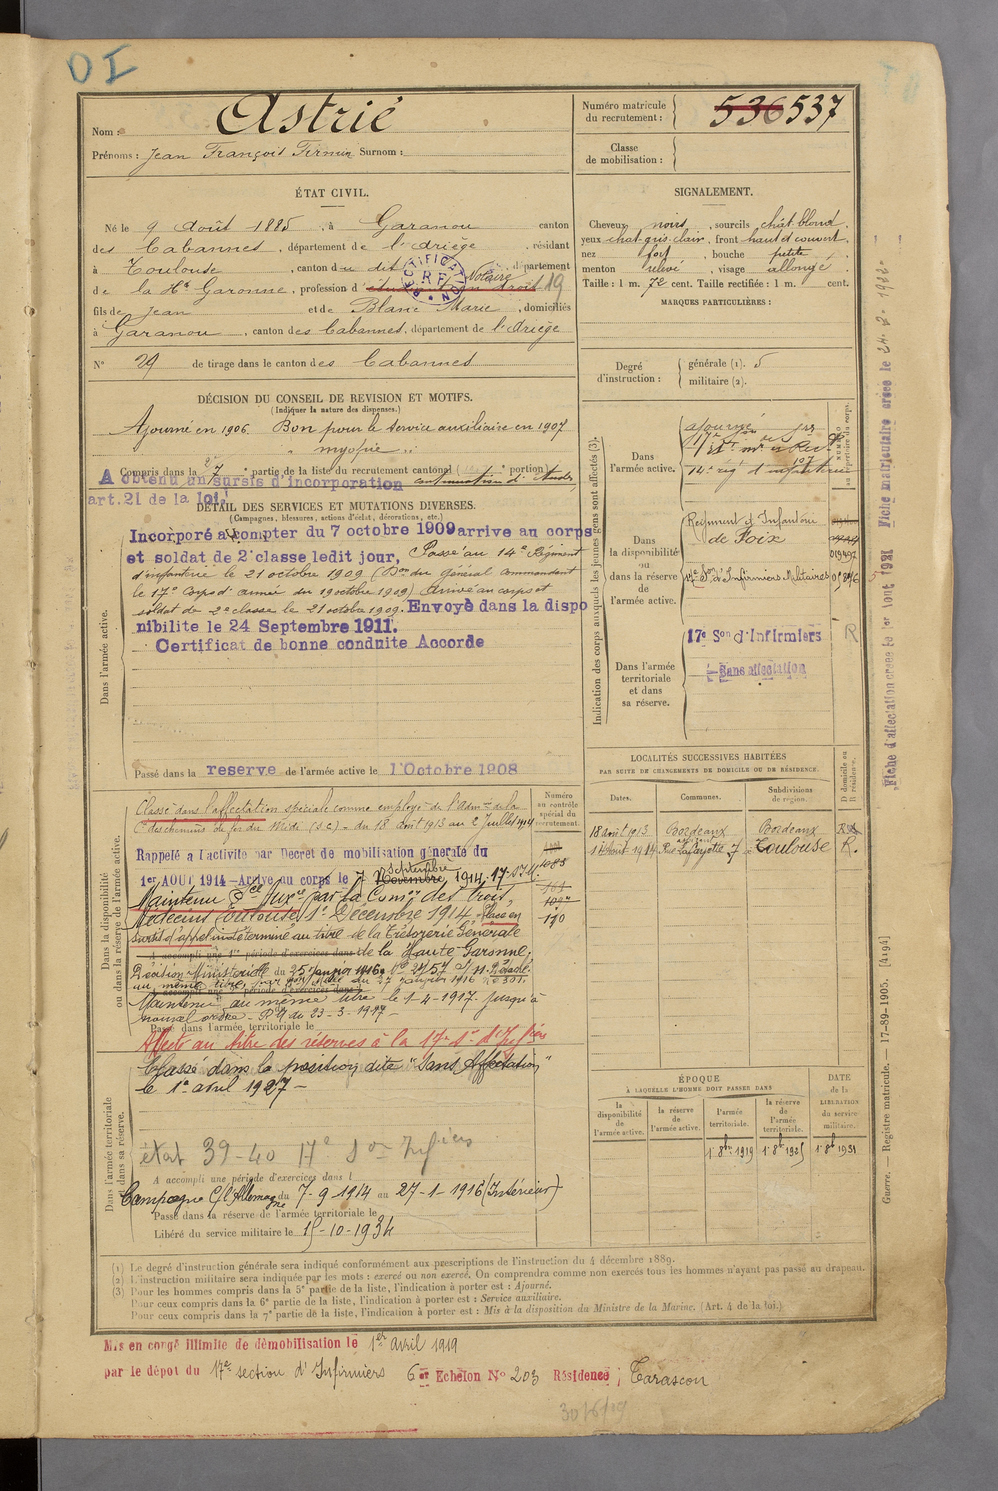 OI
Nom : Astrié
Prénoms : Jean François Firmin Surnom :
Numéro matricule du recrutement : 536 537
Classe de mobilisation :
ÉTAT CIVIL.
Né le 9 Août 1885, à Garanou canton
des Cabannes, département de l'Ariège, résidant
à Toulouse, canton du dit, département
de la Hte Garonne, profession d'étudiant en droit Notaire 19
RECTIFICATION RF
fils de Jean et de Blanc Marie, domiciliés
à Garanou, canton des Cabannes, département de l'Ariège
N° 29 de tirage dans le canton des Cabannes
SIGNALEMENT.
Cheveux noirs, sourcils chât. blond,
yeux chat. gris clair, front haut découvert,
nez fort, bouche petite,
menton relevé, visage allongé.
Taille : 1 m. 72 cent. Taille rectifiée : 1 m. cent.
MARQUES PARTICULIÈRES :
Degré d'instruction :
générale (1). 5
militaire (2).
DÉCISION DU CONSEIL DE REVISION ET MOTIFS.
(Indiquer la nature des dispenses.)
Ajourné en 1906. Bon pour le service auxiliaire en 1907
"myopie"
Compris dans la 7e partie de la liste du recrutement cantonal ( portion)
A obtenu un sursis d'incorporation continuation d'études,
art. 21 de la loi.
DÉTAIL DES SERVICES ET MUTATIONS DIVERSES.
(Campagnes, blessures, actions d'éclat, décorations, etc.)
Dans l'armée active.
Incorporé à compter du 7 octobre 1909 arrivé au corps
et soldat de 2e classe ledit jour, Passé au 14e Régiment
d'infanterie le 21 octobre 1909 (Don du général commandant
le 17e Corps d'armée du 19 octobre 1909) Arrivé au corps et
soldat de 2e classe le 21 octobre 1909. Envoyé dans la dispo
nibilite le 24 Septembre 1911.
Certificat de bonne conduite Accorde
Passé dans la reserve de l'armée active le 1 Octobre 1908
Indication des corps auxquels les jeunes gens sont affectés (3).
NUMÉRO au répertoire du corps.
Dans l'armée active.
ajourné
Dans la disponibilité ou dans la réserve de l'armée active.
Régiment d'Infanterie
de Foix
17e Son d'Infirmiers Militaires
Dans l'armée territoriale et dans sa réserve.
17e Son d'Infirmiers R
Sans affectation
LOCALITÉS SUCCESSIVES HABITÉES
PAR SUITE DE CHANGEMENTS DE DOMICILE OU DE RÉSIDENCE.
Dates. Communes. Subdivisions de région. D domicile ou R résidence.
18 août 1913 Bordeaux Bordeaux R
1914 Rue Lafayotte 7 Toulouse R.
Dans la disponibilité ou dans la réserve de l'armée active.
Numéro au contrôle spécial du recrutement.
Classé dans l'affectation spéciale comme employé de l'Admon de la
Cie des chemins de fer du Midi (S.C.) - du 18 août 1913 au 2 Juillet 1914
Rappelé a l'activite par Decret de mobilisation génerale du
1er AOUT 1914 - Arrivé au corps le 7 Novembre septembre 1914. 17 S.I.M.
Maintenu Sce Auxre par la Comon des Trois
Médecins Toulouse 1er Décembre 1914. Placé en
sursis d'appel indéterminé au titre de la Trésorerie Générale
A accompli une 1re période d'exercices dans de la Haute-Garonne.
Décision Ministérielle du 25 Janvier 1916
A accompli une 2e période d'exercices dans l
Maintenu au même titre le 1-4-1917 jusqu'à
nouvel ordre - du 23-3-1917 -
Passé dans l'armée territoriale le
Affecté au titre des réserves à la 17e Son d'Infiers
1088
110
Dans l'armée territoriale et dans sa réserve.
Classé dans la position dite "Sans Affectation"
le 1er avril 1927 -
état 39-40 17e Son Infiers
A accompli une période d'exercices dans l
Campagne C/ l'Allemagne du 7-9-1914 au 27-1-1916 (Intérieur)
Passé dans la réserve de l'armée territoriale le
Libéré du service militaire le 15-10-1934
ÉPOQUE
À LAQUELLE L'HOMME DOIT PASSER DANS
la disponibilité de l'armée active. la réserve de l'armée active. l'armée territoriale. la réserve de l'armée territoriale.
DATE de la LIBÉRATION du service militaire.
1er 8bre 1919 1er 8bre 1925 1er 8bre 1931
(1) Le degré d'instruction générale sera indiqué conformément aux prescriptions de l'instruction du 4 décembre 1889.
(2) L'instruction militaire sera indiquée par les mots : exercé ou non exercé. On comprendra comme non exercés tous les hommes n'ayant pas passé au drapeau.
(3) Pour les hommes compris dans la 5e partie de la liste, l'indication à porter est : Ajourné.
Pour ceux compris dans la 6e partie de la liste, l'indication à porter est : Service auxiliaire.
Pour ceux compris dans la 7e partie de la liste, l'indication à porter est : Mis à la disposition du Ministre de la Marine. (Art. 4 de la loi.)
Mis en congé illimité de démobilisation le 1er avril 1919
par le dépot du 17e section d'Infirmiers 6er Echelon N° 203 Résidence ; Tarascon
30/6/19
Fiche matriculaire créée le 24.2.1922
Fiche d'affectation créée le 1er Aout 1921
Guerre. — Registre matricule. — 17-89-1905. [4194]